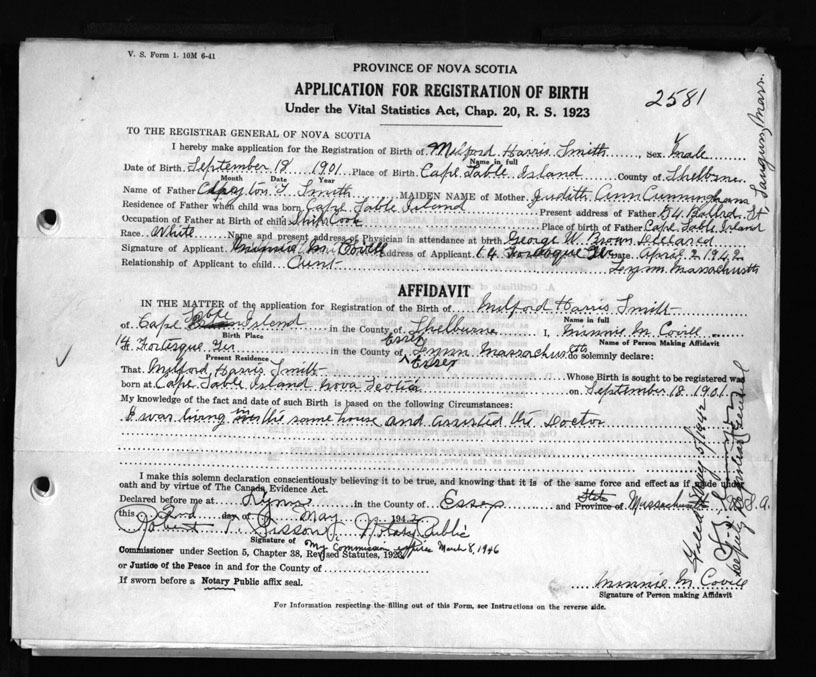 V. S. Form 1. 10M 6-41
PROVINCE OF NOVA SCOTIA
APPLICATION FOR REGISTRATION OF BIRTH
Under the Vital Statistics Act, Chap. 20, R. S. 1923
2581
TO THE REGISTRAR GENERAL OF NOVA SCOTIA
I hereby make application for the Registration of Birth of Milford Harris Smith, Sex Male
Name in full
Date of Birth September 18 1901 Place of Birth Cape Sable Island County of Shelburne
Month Date Year
Name of Father Smith MAIDEN NAME of Mother Judith Ann Cunningham
Residence of Father when child was born Cape Sable Island Present address of Father 54 St
Occupation of Father at Birth of child Ship Cook Place of birth of Father Cape Sable Island
Race White Name and present address of Physician in attendance at birth George W. Brown Deceased
Signature of Applicant Minnie M. Covill Address of Applicant 14 Fortesque Ter Date April 2 1942
Relationship of Applicant to child Aunt Lynn Massachusetts
AFFIDAVIT
IN THE MATTER of the application for Registration of the Birth of Milford Harris Smith
Name in full
of Cape Sable Island in the County of Shelburne I, Minnie M. Covill
Birth Place Name of Person Making Affidavit
14 Fortesque Ter in the County of Essex Lynn Massachusetts do solemnly declare:
Present Residence Essex
That Milford Harris Smith Whose Birth is sought to be registered was
born at Cape Sable Island Nova Scotia on September 18 1901
My knowledge of the fact and date of such Birth is based on the following Circumstances:
I was living in the same house and assisted the Doctor
I make this solemn declaration conscientiously believing it to be true, and knowing that it is of the same force and effect as if made under
oath and by virtue of The Canada Evidence Act.
Declared before me at Lynn in the County of Essex and State Province of Massachusetts U.S.A.
this 2nd day of May 1942
Robert Sisson Notary Public
Signature of My Commission expires March 8, 1946
Commissioner under Section 5, Chapter 38, Revised Statutes, 1923
or Justice of the Peace in and for the County of
If sworn before a Notary Public affix seal.
Minnie M. Covill
Signature of Person making Affidavit
For Information respecting the filling out of this Form, see Instructions on the reverse side.
Filed May 5/1942
Deputy Registrar General